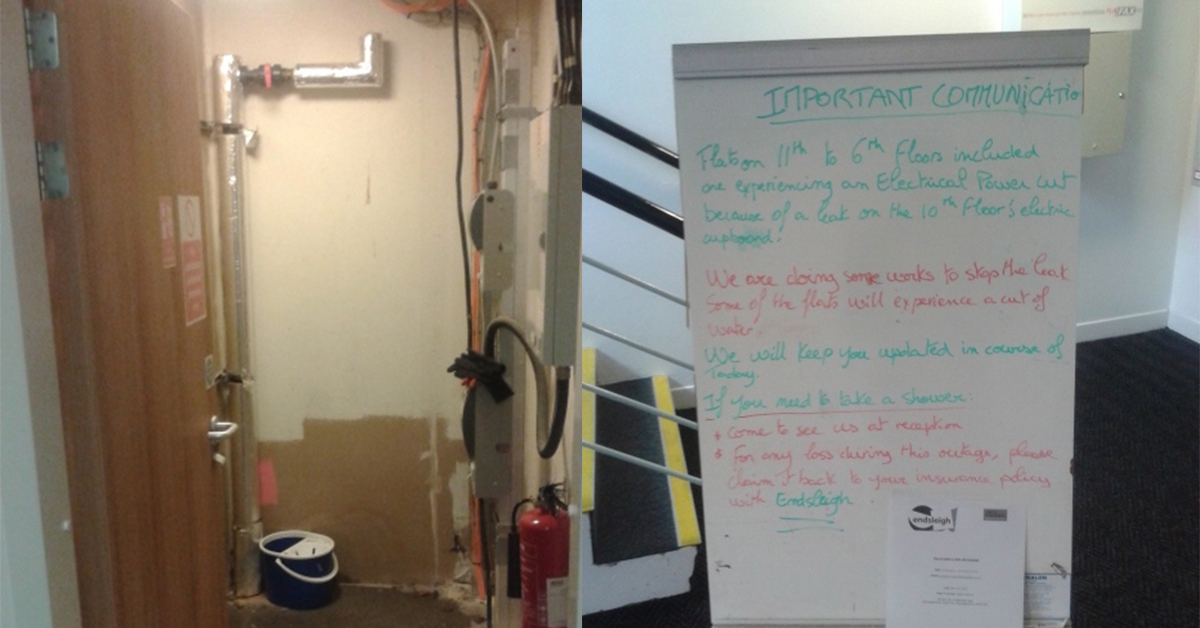 IMPORTANT COMMUNICATIO
Flats on 11th to 6th floors included
are experiencing an Electrical Power cut
because of a leak on the 10th Floor's electric
cupboard.
We are doing some works to stop the leak
Some of the flats will experience a cut of
water.
We will keep you updated in course of
Today.
If you need to take a shower:
* come to see us at reception
* For any loss during this outage, please
claim it back to your insurance policy
with Endsleigh.
endsleigh